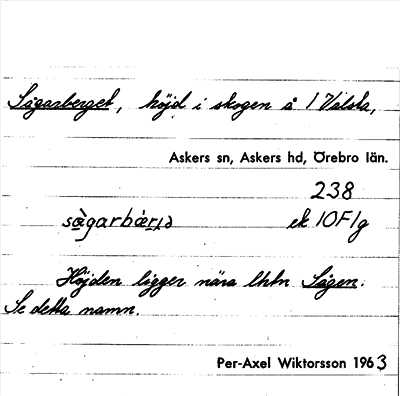 Sågarberget, höjd i skogen å 1 Valsta,
Askers sn, Askers hd, Örebro län.
238
ek 10F1g
Höjden ligger nära lhtn Sågen.
Se detta namn.
Per-Axel Wiktorsson 1963